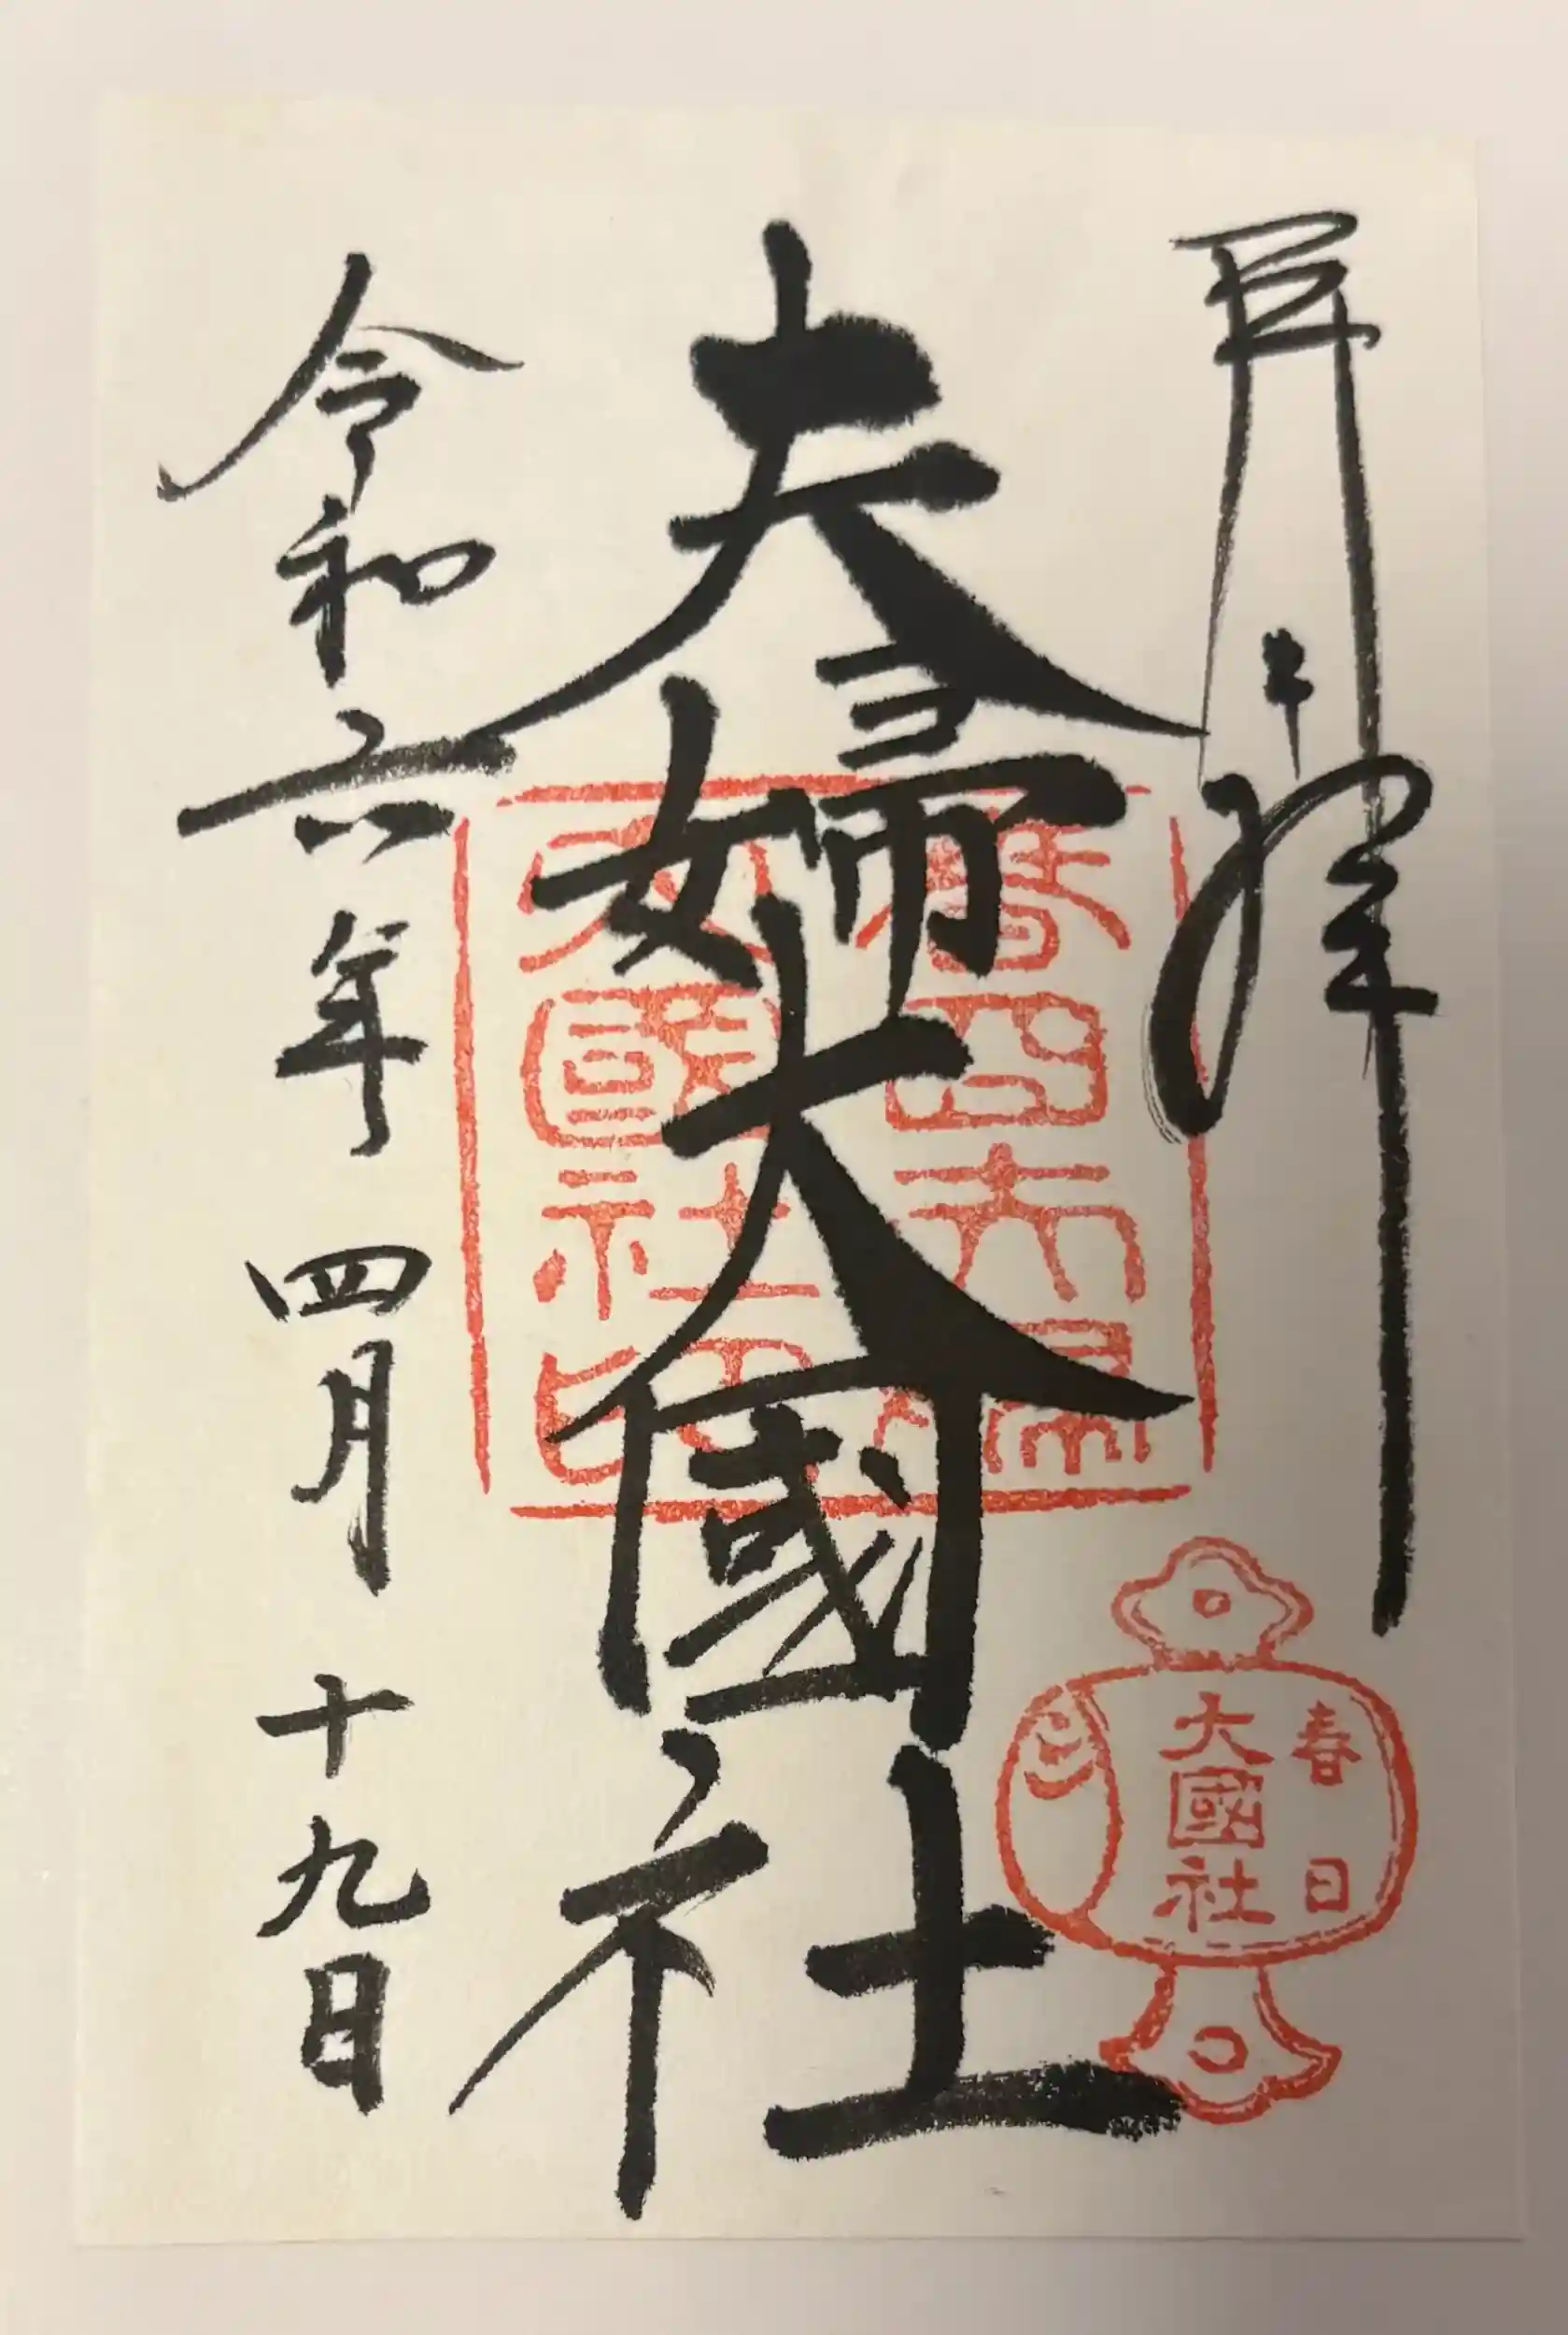 奉拝
夫婦大國社
令和六年四月十九日
春日夫婦
大國社印
春日
大國社